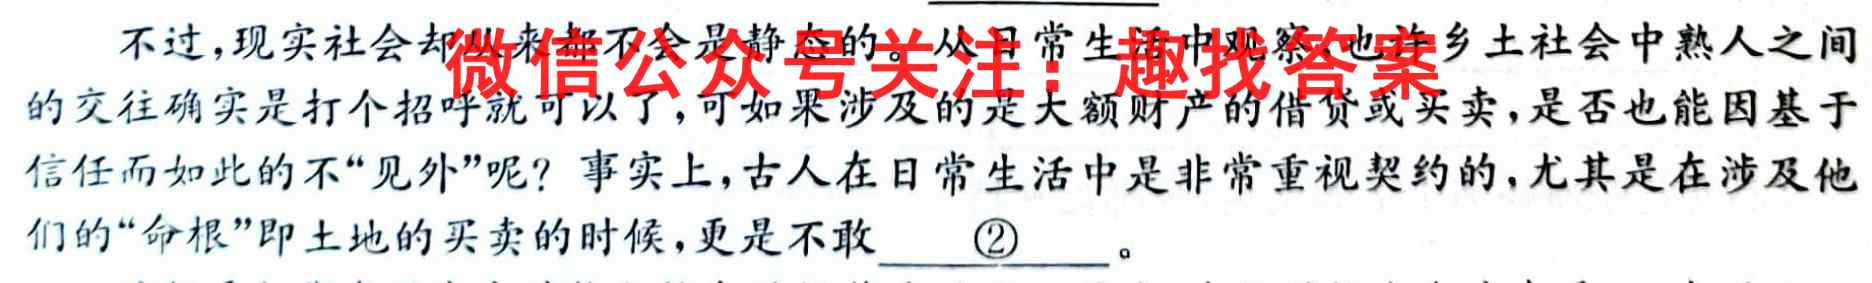 不过,现实社会却从来都不会是静态的。从日常生活中观察,也许乡土社会中熟人之间
微信公众号关注:趣找答案
的交往确实是打个招呼就可以了,可如果涉及的是大额财产的借贷或买卖,是否也能因基于
信任而如此的不“见外”呢?事实上,古人在日常生活中是非常重视契约的,尤其是在涉及他
们的“命根”即土地的买卖的时候,更是不敢 ② 。